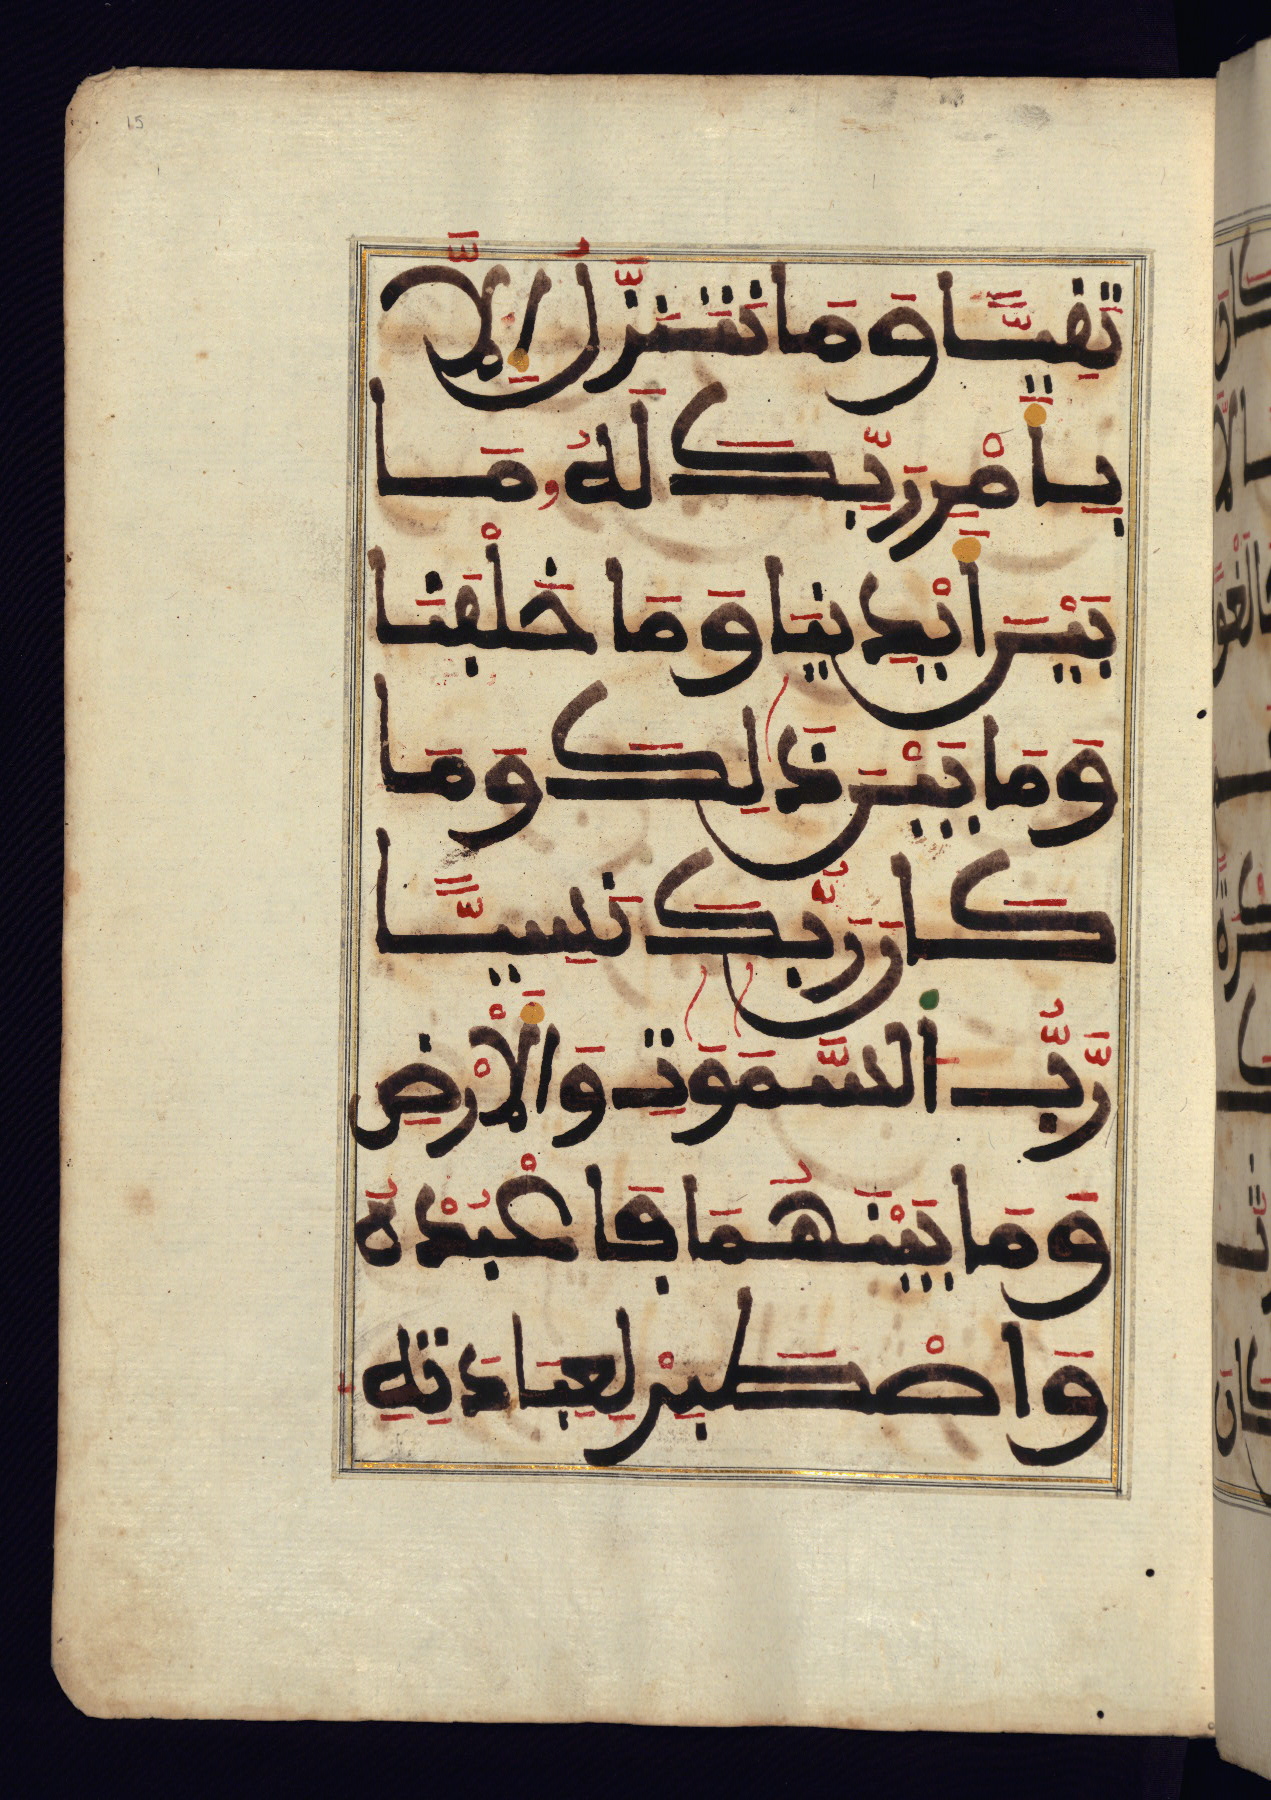 15
تَقِيًّا وَمَا نَتَنَزَّلُ إِلَّا
بِأَمْرِ رَبِّكَ لَهُۥ مَا
بَيْنَ أَيْدِينَا وَمَا خَلْفَنَا
وَمَا بَيْنَ ذَٰلِكَ وَمَا
كَانَ رَبُّكَ نَسِيًّا
رَّبُّ ٱلسَّمَٰوَٰتِ وَالْأَرْضِ
وَمَا بَيْنَهُمَا فَاعْبُدْهُ
وَاصْطَبِرْ لِعِبَادَتِهِ